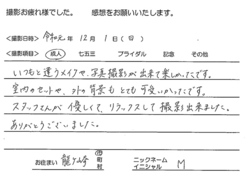 撮影お疲れ様でした。　感想をお願いいたします。
<撮影日時> 令和元年 12月 1日(日)
<撮影項目> 成人 七五三 ブライダル 記念 その他
いつもと違うメイクや、写真撮影が出来て楽しかったです。
室内のセットや、外の背景も とても可愛いかったです。
スタッフさんが優しくて、リラックスして撮影出来ました。
ありがとうございました。
お住まい 龍ケ崎 市 町 村 ニックネーム イニシャル M